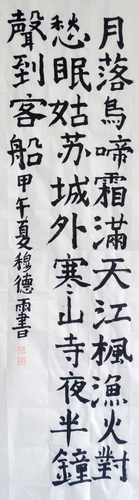 月落烏啼霜滿天江楓漁火對
愁眠姑苏城外寒山寺夜半鐘
聲到客船甲午夏穆德雨書